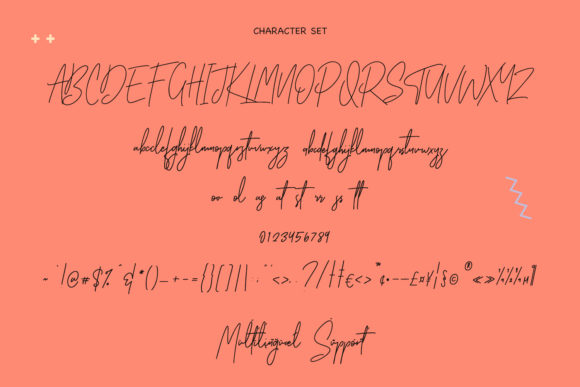 CHARACTER SET
ABCDEFGHIJKLMNOPQRSTUVWXYZ
abcdefghijklmnopqrstuvwxyz abcdefghijklmnopqrstuvwxyz
ov ol us at st rr ss tt
0123456789
~ ` ! @ # $ % ^ & * ( ) _ + - = { } [ ] | \ : ; " ' < > , . ? / † ‡ € < > ™ ¢ • – — £ ¤ ¥ ¦ § © ® « »
Multilingual Support